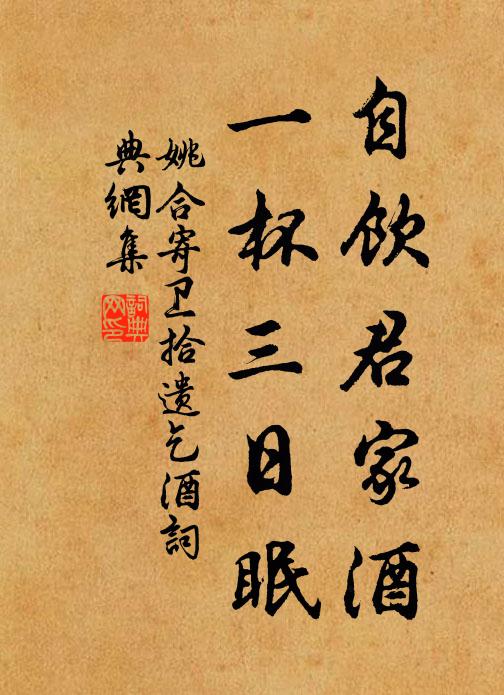 自饮君家酒
一杯三日眠
姚合寄卫拾遗乞酒詞
典網集
詞典网印